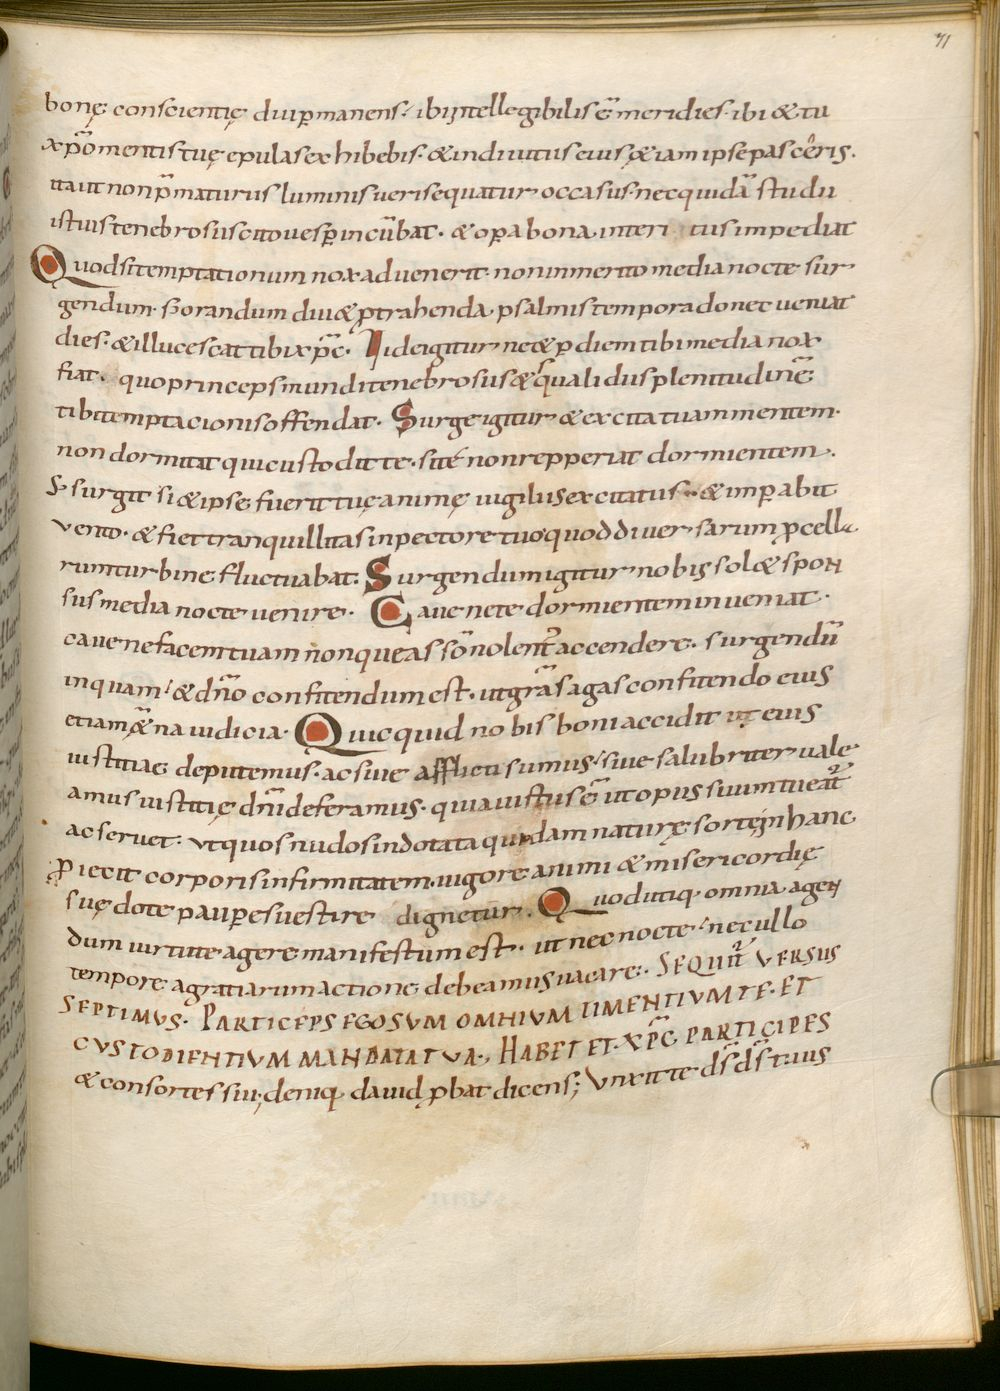 71
bonę conscientię diu p̄manens. ibi intellegibilis ē meridies. ibi & tu
xp̄o mentis tuę epulas exhibebis. & indiuitus eius &iam ipse pasceris.
ita ut non p̄maturus luminis ueri sequatur occasus. nec quidā studii
istius tenebrosus cito uesp̄ incūbat. & op̄a bona interi tus impediat
Quod si temptationum nox aduenerit non inmerito media nocte sur
gendum. & orandum diu & ꝓtrahenda psalmis tempora donec ueniat
dies. & illucescat tibi xp̄c. Uide igitur ne & p̄ diem tibi media nox
fiat. quo princeps mundi tenebrosus & squalidus plenitudinē
tibi temptacionis offendat. Surge igitur & excita tuam mentem.
non dormitat qui custodit te. si te non repperiat dormientem.
S; surgit si & ipse fuerit tuę animę uigiliis excitatus. & imp̄abit
vento. & fiet tranquillitas in pectore tuo quod diuersarum ꝓcella
rum turbine fluctuabat. Surgendum igitur nobis sol& spon
sus media nocte uenire. Caue ne te dormientem inueniat.
caue ne facem tuam non queas sōnolent̄ accendere. surgendū
inquam. & dn̄o confitendum est. ut grās agas confitendo eius
etiam &̄na iudicia. Quicquid nobis boni accidit ut eius
iustitiae deputemus. ac siue afflicti sumus. siue salubriter uale
amus iustitię dn̄i deferamus. quia iustus ē ut opus suum tueat̄
ac seruet. vt quos nudos indotata quidam naturę sorte in hanc
ꝓiecit corporis infirmitatem. uigore animi & misericordię
suę dote paup̄es uestire dignetur. Quod utiq. omnia agen
dum uirtute agere manifestum est. ut nec nocte. nec ullo
tempore a gratiarum actione debeamus uacare. SEQUIT̄ VERSUS
SEPTIMUS. PARTICEPS EGO SVM OMNIVM TIMENTIVM TE. ET
CVSTODIENTIVM MANDATA TVA. HABET ET XP̄C PARTICIPES
& consortes sui; deniq dauid ꝓbat dicens; Vnxit te ds̄ ds̄ tuus